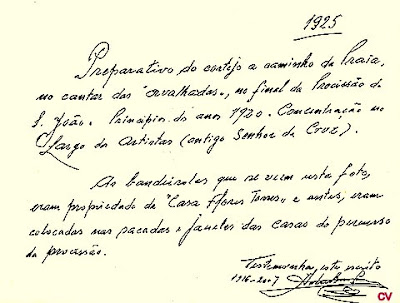 1925
Preparativo do cortejo a caminho da Praia,
no cantar das "orvalhadas", no final da Procissão de
S. João. Princípios do anos 1920. Concentração no
Largo dos Artistas (antigo Senhor da Cruz).
As bandeirolas que se veem nesta foto,
eram propriedade da "Casa Flores Torres" e outras, eram
colocadas nas sacadas e janelas das casas do percurso
da procissão.
Testemunha, este escrito
1916-2007
CV